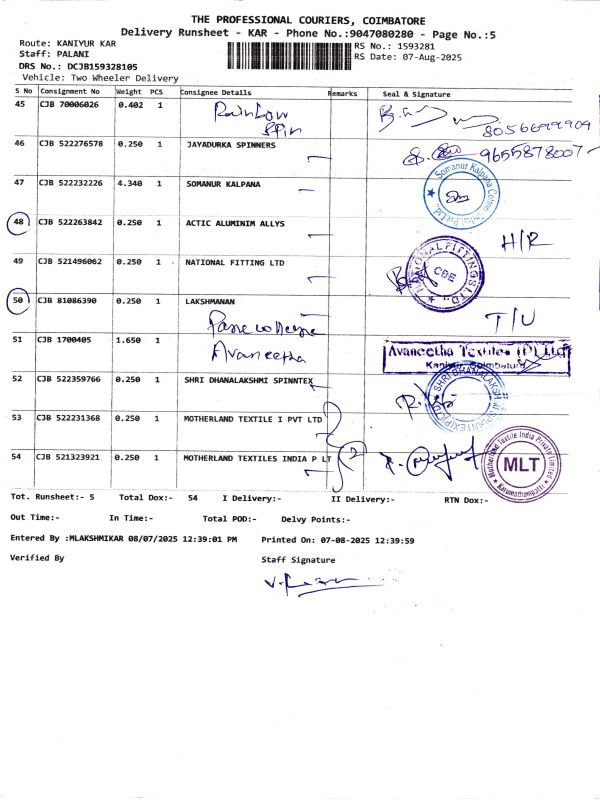 THE PROFESSIONAL COURIERS, COIMBATORE
Delivery Runsheet - KAR - Phone No.:9047080280 - Page No.:5
Route: KANIYUR KAR
RS No.: 1593281
Staff: PALANI
RS Date: 07-Aug-2025
DRS No.: DCJB159328105
Vehicle: Two Wheeler Delivery
S No Consignment No Weight PCS Consignee Details Remarks Seal & Signature
45 CJB 70006026 0.402 1 Rainbow Spin
8056699909
46 CJB 522276578 0.250 1 JAYADURKA SPINNERS
9655878007
47 CJB 522232226 4.340 1 SOMANUR KALPANA
Somanur Kalpana Cotton India Pvt Ltd.
48 CJB 522263842 0.250 1 ACTIC ALUMINIM ALLYS
H/R
49 CJB 521496062 0.250 1 NATIONAL FITTING LTD
NATIONAL FITTINGS LTD.
CBE
50 CJB 81086390 0.250 1 LAKSHMANAN
T/U
51 CJB 1700405 1.650 1 Avaneetha
Avaneetha Textiles (P) Ltd
52 CJB 522359766 0.250 1 SHRI DHANALAKSHMI SPINNTEX
SHRI DHANALAKSHMI SPINNTEX (P) LTD
53 CJB 522231368 0.250 1 MOTHERLAND TEXTILE I PVT LTD
54 CJB 521323921 0.250 1 MOTHERLAND TEXTILES INDIA P LT
2
Motherland Textile India Private Limited
MLT
Karumathampatti
Tot. Runsheet:- 5 Total Dox:- 54 I Delivery:- II Delivery:- RTN Dox:-
Out Time:- In Time:- Total POD:- Delvy Points:-
Entered By :MLAKSHMIKAR 08/07/2025 12:39:01 PM Printed On: 07-08-2025 12:39:59
Verified By Staff Signature